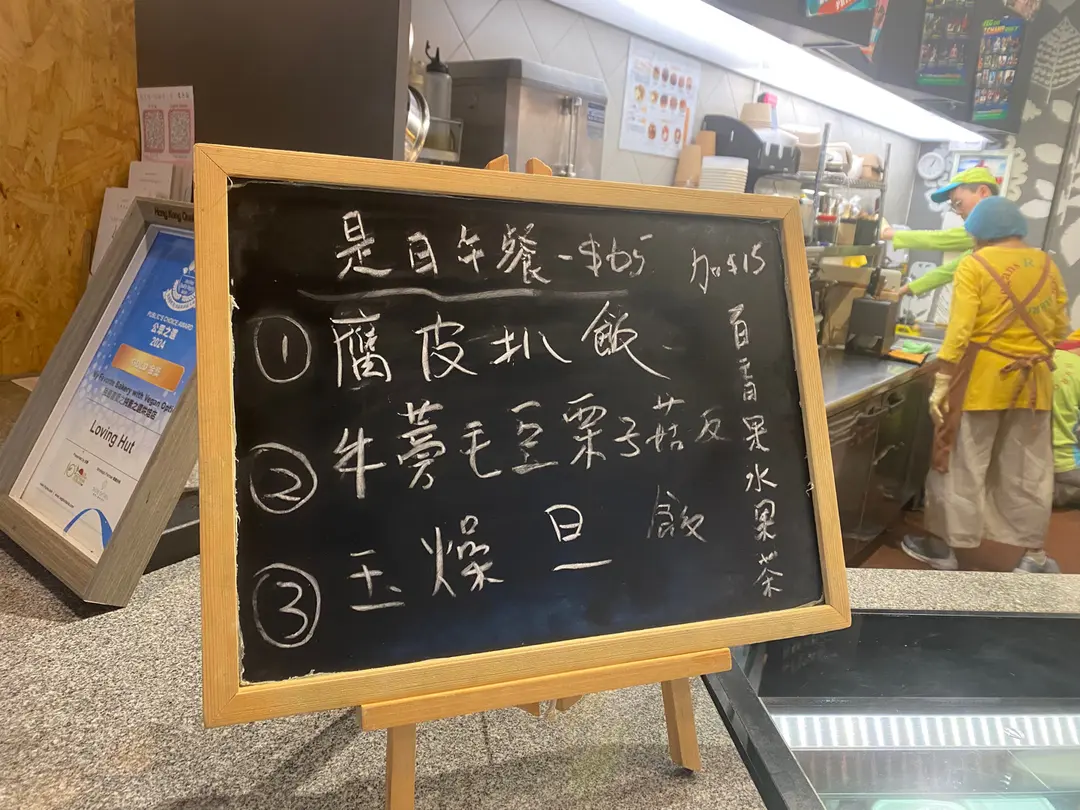 是日午餐-$65
加$15
① 腐皮扒飯
② 牛蒡毛豆栗子菇反
③ 玉燥旦飯
百香果水果茶
Hong Kong
PUBLIC'S CHOICE AWARD
公眾之選
2024
Favorite Bakery with Vegan
Loving Hut